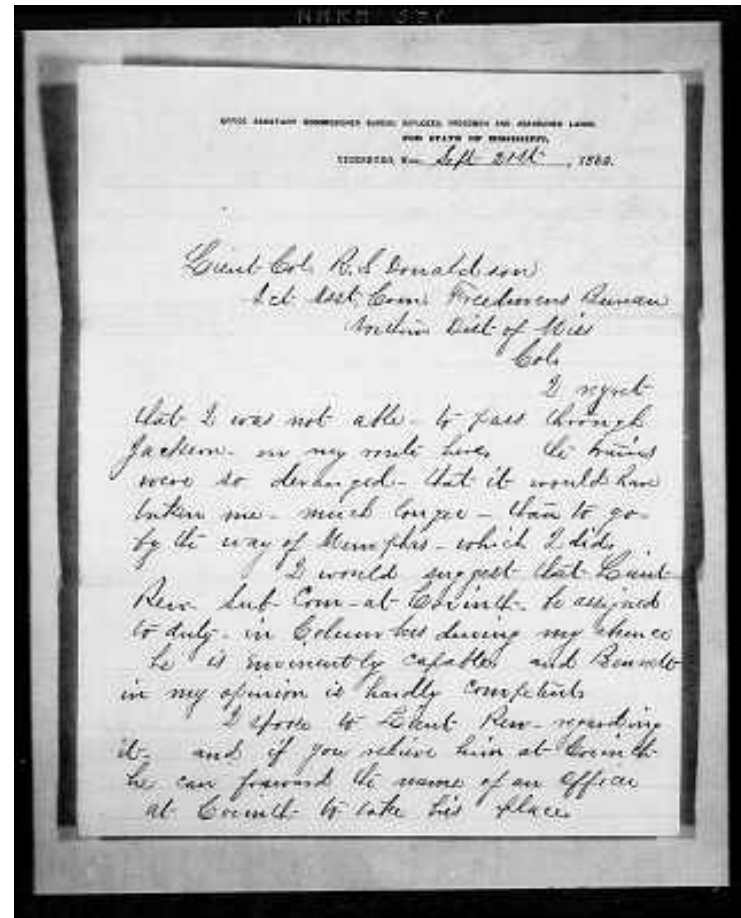 OFFICE ASSISTANT COMMISSIONER BUREAU REFUGEES, FREEDMEN AND ABANDONED LANDS
FOR STATE OF MISSISSIPPI,
VICKSBURG, Miss. Sept 21st, 186
Lieut Col. R. S Donaldson
Act Asst Com. Freedmens Bureau
Dist of Miss
Col.
I regret
that I was not able - to pass through
Jackson - on my route here. the trains
were so deranged - that it would have
taken me - much longer - than to go -
by the way of Memphis - which I did.
I would suggest that Lieut
Sub Com - at Corinth - be assigned
to duty - in Columbus during my absence
he is eminently capable. and Bennett
in my opinion is hardly competent.
I spoke to Lieut regarding
it - and if you relieve him at Corinth
he can forward the name of an officer
at Corinth to take his place.